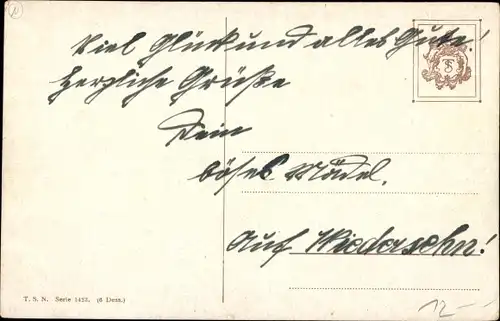 Viel Glück und alles Gute!
Herzliche Grüße
Dein
böses Mädel.
Auf Wiedersehn!
T. S. N. Serie 1452. (6 Dess.)
12 —